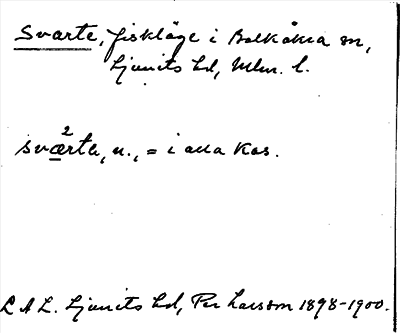 Svarte, fiskläge i Balkåkra sn,
Ljunits hd, Mlm. l.
2
sværta, n., = i alla kas.
L A L. Ljunits hd, Per Larsson 1898-1900.